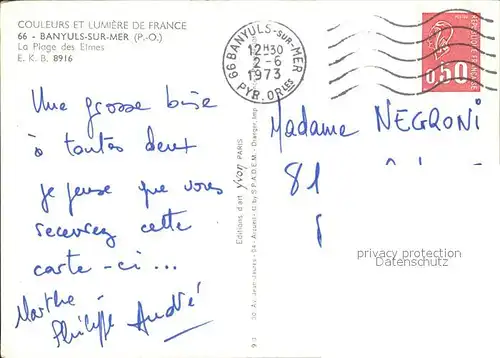 COULEURS ET LUMIÈRE DE FRANCE
66 - BANYULS-SUR-MER (P.-O.)
La Plage des Elmes
E. K. B. 8916
66 BANYULS-SUR-MER
12H30
2-6
1973
PYR. ORLES
REPUBLIQUE FRANÇAISE
0,50
Une grosse bise
à toutes deux
je pense que vous
recevrez cette
carte-ci...
Marthe
Philippe André
Editions d'art yvon PARIS
Madame NEGRONI
81
privacy protection
Datenschutz